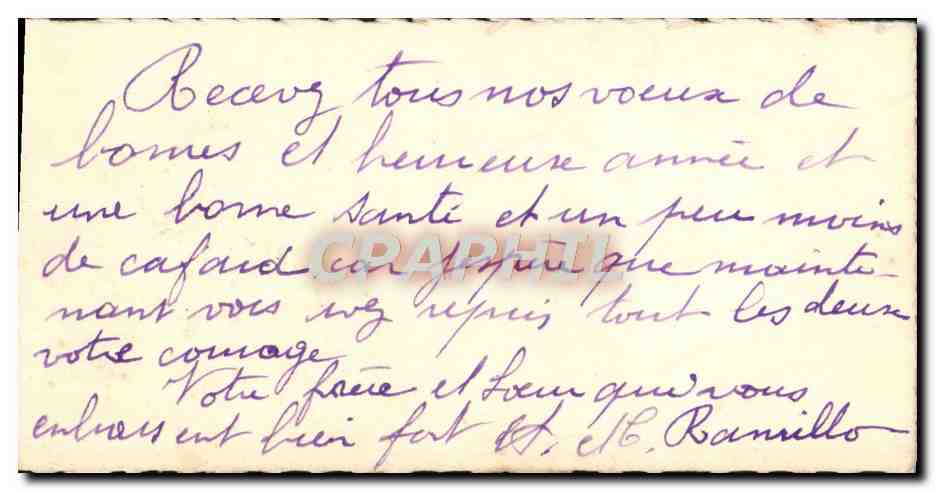 Recevez tous nos voeux de
bonnes et heureuse année et
une bonne santé et un peu moins
de cafard car jespère que mainte-
nant vous avez repris tout les deux
votre courage
Votre frère et Soeur qui vous
enbrassent bien fort
CRAPHIL